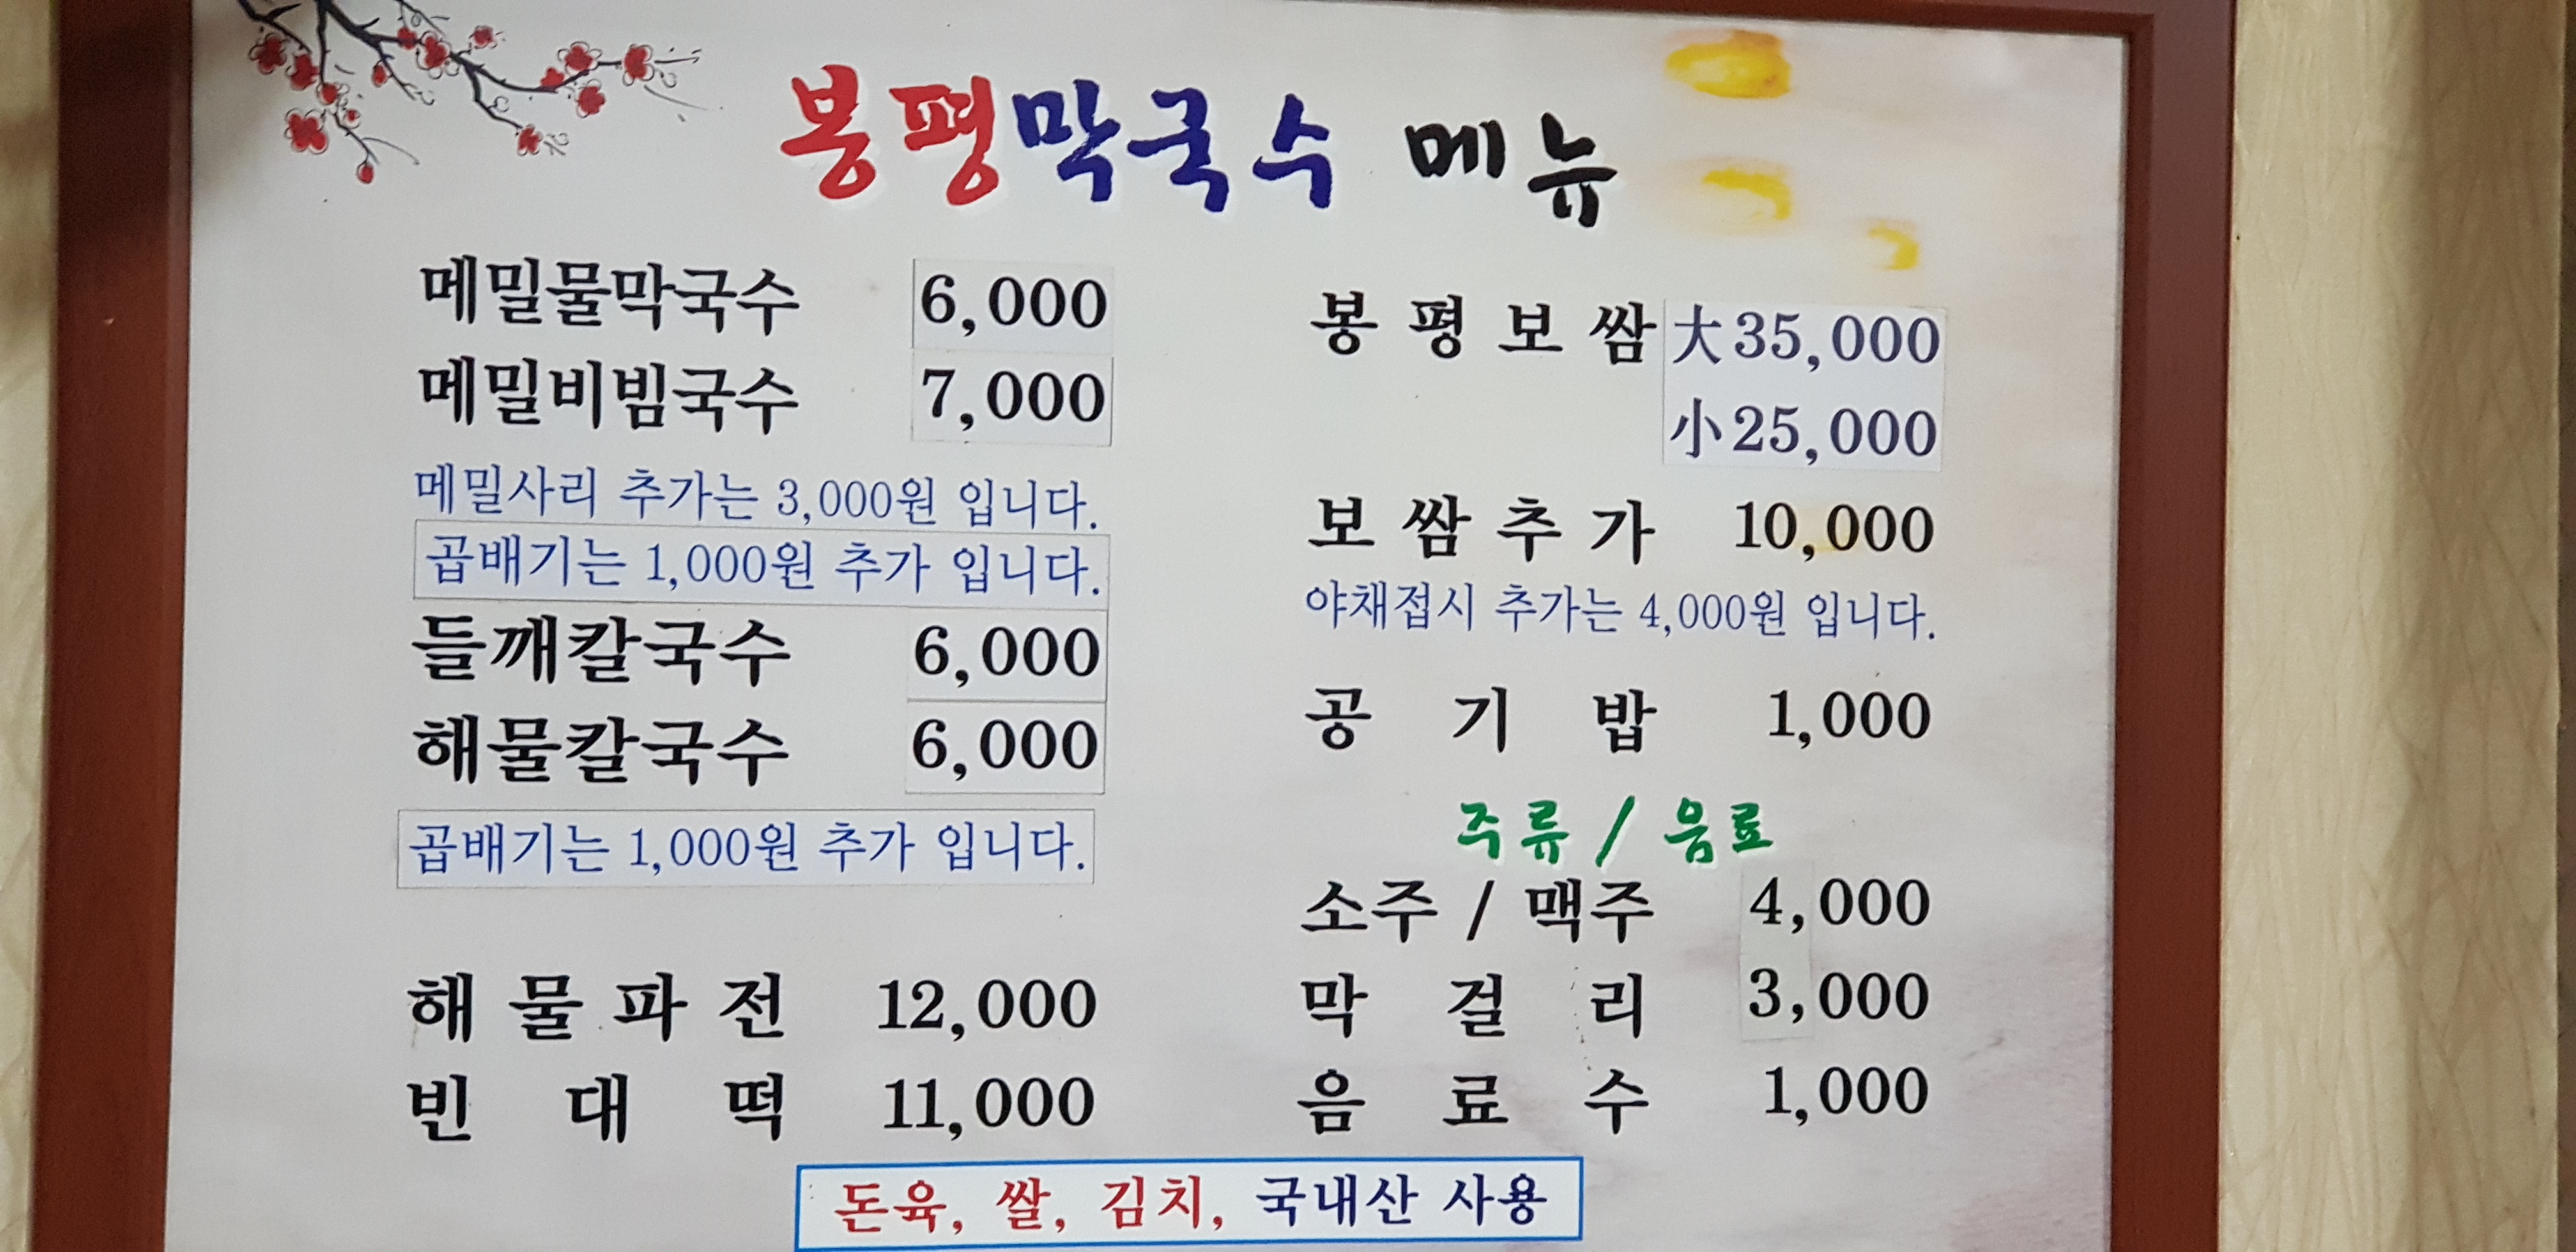 봉평막국수 메뉴
메밀물막국수 6,000
메밀비빔국수 7,000
메밀사리 추가는 3,000원 입니다.
곱배기는 1,000원 추가 입니다.
들깨칼국수 6,000
해물칼국수 6,000
곱배기는 1,000원 추가 입니다.
해물파전 12,000
빈대떡 11,000
봉평보쌈 大35,000
小25,000
보쌈추가 10,000
야채접시 추가는 4,000원 입니다.
공기밥 1,000
주류 / 음료
소주 / 맥주 4,000
막걸리 3,000
음료수 1,000
돈육, 쌀, 김치, 국내산 사용